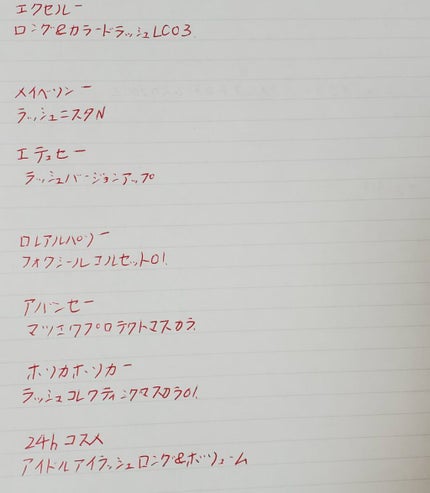 エクセルー
ロング&カラードラッシュLC03
メイベリンー
ラッシュニスタN
エテュセー
ラッシュバージョンアップ
ロレアルパリー
フォクシールコルセット01
アバンセー
マツエクプロテクトマスカラ
ホリカホリカー
ラッシュコレクティングマスカラ01
24hコスメ
アイドルアイラッシュロング&ボリューム